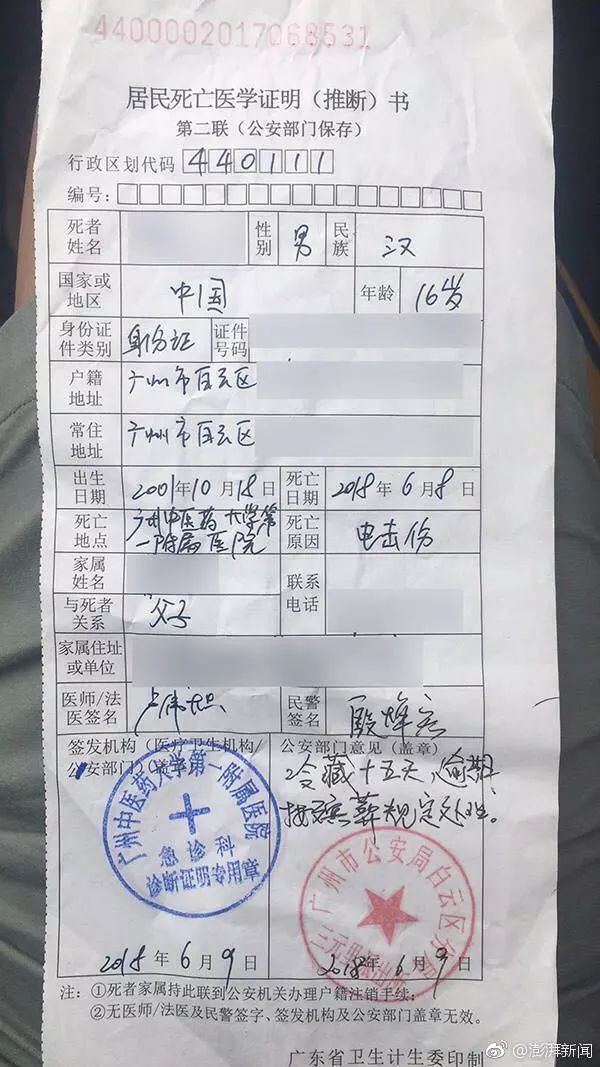 4400002017068531
居民死亡医学证明（推断）书
第二联（公安部门保存）
行政区划代码 440111
编号：
死者姓名 性别 男 民族 汉
国家或地区 中国 年龄 16岁
身份证件类别 身份证 证件号码
户籍地址 广州市白云区
常住地址 广州市白云区
出生日期 2001年10月18日 死亡日期 2018年6月8日
死亡地点 广州中医药大学第一附属医院 死亡原因 电击伤
家属姓名 联系电话
与死者关系 父子
家属住址或单位
医师/法医签名 民警签名
签发机构（医疗卫生机构/公安部门）（盖章） 公安部门意见（盖章）
冷藏十五天，逾期
按殡葬规定处理。
广州中医药大学第一附属医院
急诊科
诊断证明专用章
广州市公安局白云区分局
2018年6月9日 2018年6月9日
注：①死者家属持此联到公安机关办理户籍注销手续；
②无医师/法医及民警签字、签发机构及公安部门盖章无效。
广东省卫生计生委印制
@澎湃新闻